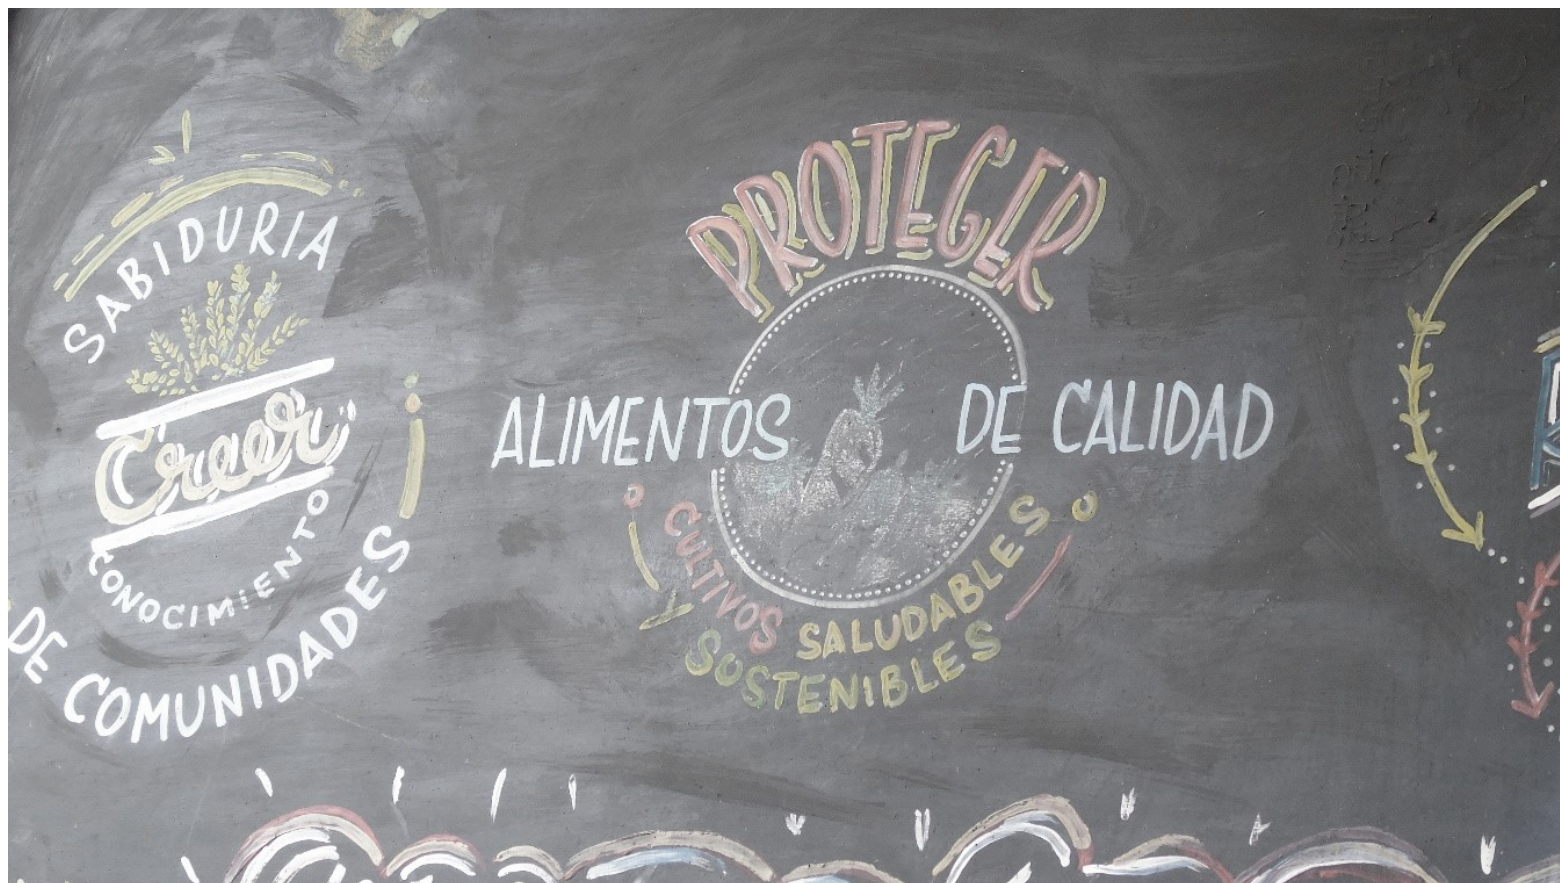 SABIDURIA
Creer
CONOCIMIENTO
DE COMUNIDADES
PROTEGER
ALIMENTOS DE CALIDAD
CULTIVOS SALUDABLES
Y SOSTENIBLES